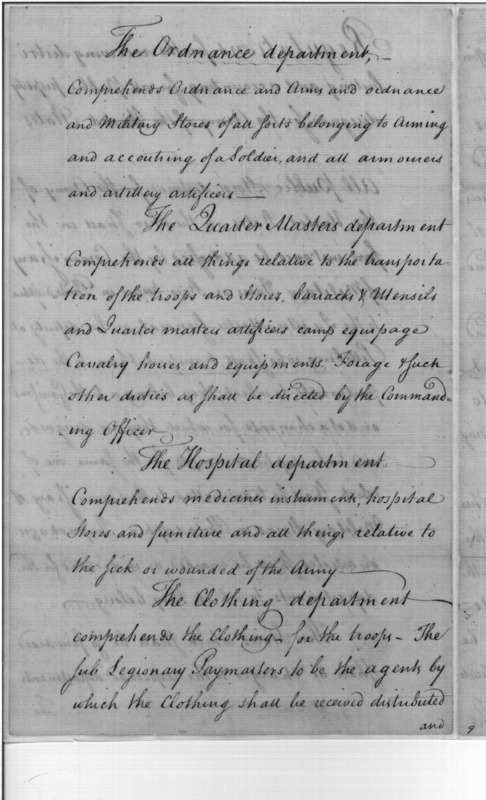 The Ordnance department,
Comprehends Ordnance and Arms and ordnance
and Military Stores of all sorts belonging to Arming
and accoutring of a Soldier, and all armourers
and artillery artificers —
The Quarter Masters department
Comprehends all things relative to the transporta
tion of the troops and Stores, barracks & Utensils
and Quarter masters artificers camp equipage
Cavalry horses and equipments. Forage & such
other duties as shall be directed by the Command-
-ing Officer
The Hospital department
Comprehends medicines instruments, hospital
Stores and furniture and all things relative to
the sick or wounded of the Army —
The Clothing department
comprehends the Clothing – for the troops – The
sub Legionary Paymasters to be the agents by
which the Clothing shall be received distributed
and